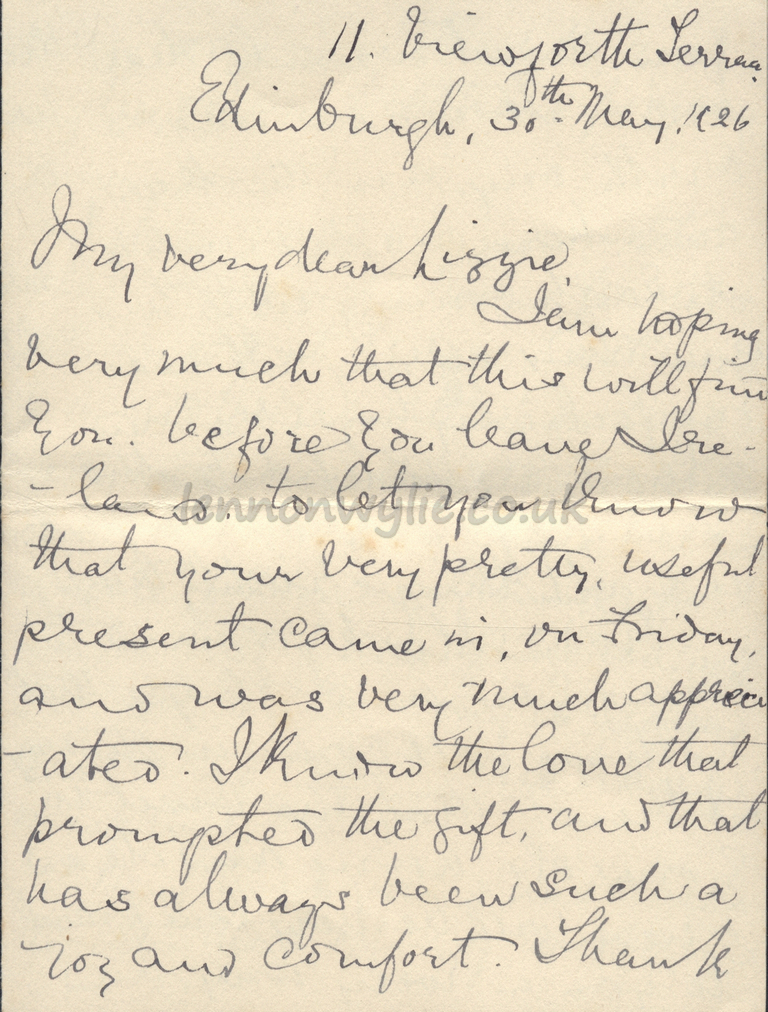 11. Viewforth Terrace.
Edinburgh, 30th. May. 1926
My very dear Lizzie,
I am hoping
very much that this will find
you. before you leave Ire-
-land. to let you know
lennonwylie.co.uk
that your very pretty, useful
present came in, on Friday,
and was very much appreci
-ated. I know the love that
prompted the gift, and that
has always been such a
joy and comfort. Thank